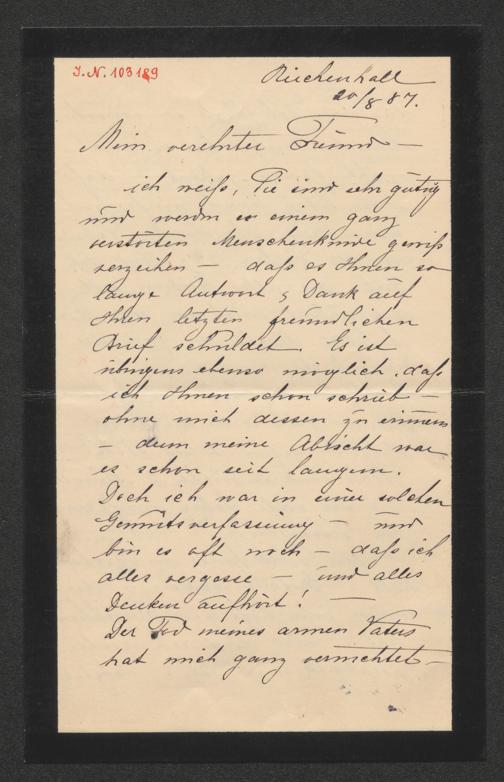 J.N. 103189
Reichenhall
20/8 87.
Mein verehrter Freund —
ich weiß, Sie sind sehr gütig
und werden es einem ganz
verstörten Menschenkinde gewiß
verzeihen — daß es Ihnen so
lange Antwort & Dank auf
Ihren letzten freundlichen
Brief schuldet. Es ist
übrigens ebenso möglich, daß
ich Ihnen schon schrieb —
ohne mich dessen zu erinnern
— denn meine Absicht war
es schon seit langem.
Doch ich war in einer solchen
Gemütsverfassung — und
bin es oft noch — daß ich
alles vergesse — und alles
Denken aufhört! —
Der Tod meines armen Vaters
hat mich ganz vernichtet —